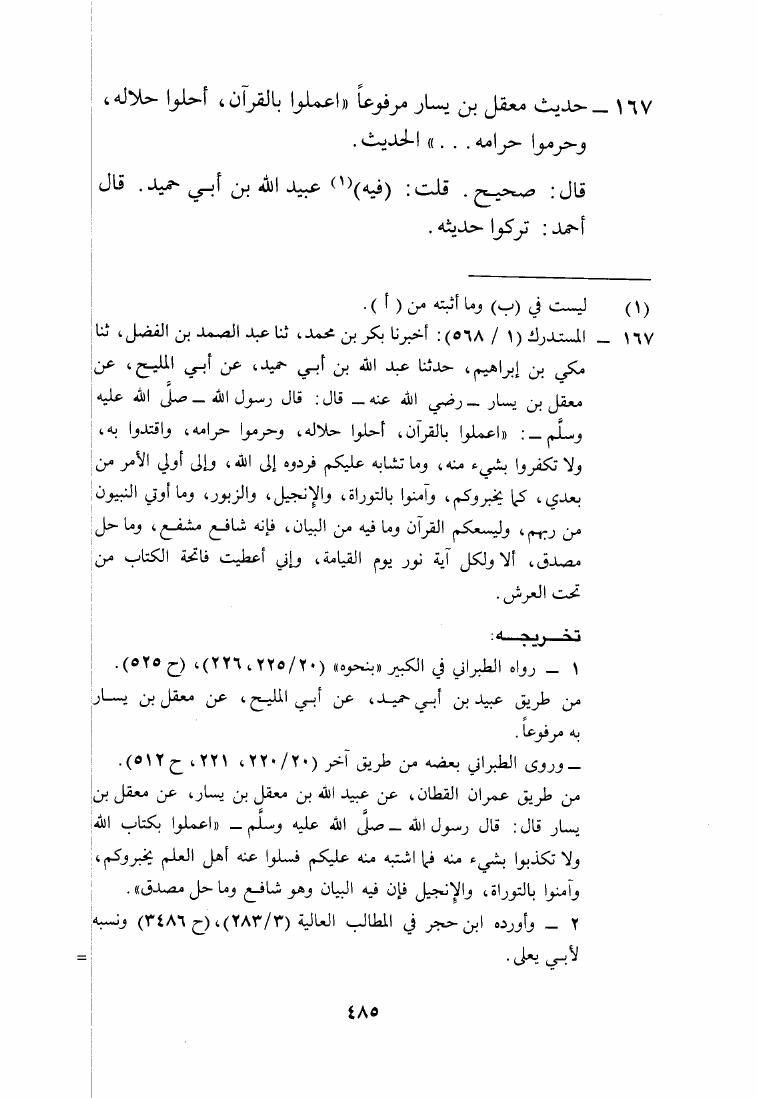 ١٦٧ ــ حديث معقل بن يسار مرفوعاً «اعملوا بالقرآن، أحلوا حلاله،
وحرموا حرامه . . . » الحديث.
قال: صحيح. قلت: (فيه)(١) عبيد الله بن أبـي حميد. قال
أحمد: تركوا حديثه.
(١) ليست في (ب) وما أثبته من ( أ ).
١٦٧ ــ المستدرك (١ / ٥٦٨): أخبرنا بكر بن محمد، ثنا عبد الصمد بن الفضل، ثنا
مكي بن إبراهيم، حدثنا عبد الله بن أبـي حميد، عن أبـي المليح، عن
معقل بن يسار ــ رضي الله عنه ــ قال: قال رسول الله ــ صلَّى الله عليه
وسلَّم ــ: «اعملوا بالقرآن، أحلوا حلاله، وحرموا حرامه، واقتدوا به،
ولا تكفروا بشيء منه، وما تشابه عليكم فردوه إلى الله، وإلى أولي الأمر من
بعدي، كما يخبروكم، وآمنوا بالتوراة، والإنجيل، والزبور، وما أوتي النبيون
من ربهم، وليسعكم القرآن وما فيه من البيان، فإنه شافع مشفع، وما حل
مصدق، ألا ولكل آية نور يوم القيامة، وإني أعطيت فاتحة الكتاب من
تحت العرش.
تخـريجـه:
١ ــ رواه الطبراني في الكبير «بنحوه» (٢٠/ ٢٢٥، ٢٢٦)، (ح ٥٢٥).
من طريق عبيد بن أبـي حميد، عن أبـي المليح، عن معقل بن يسار
به مرفوعاً.
ــ وروى الطبراني بعضه من طريق آخر (٢٠/ ٢٢٠، ٢٢١، ح ٥١٢).
من طريق عمران القطان، عن عبيد الله بن معقل بن يسار، عن معقل بن
يسار قال: قال رسول الله ــ صلَّى الله عليه وسلَّم ــ «اعملوا بكتاب الله
ولا تكذبوا بشيء منه فما اشتبه منه عليكم فسلوا عنه أهل العلم يخبروكم،
وآمنوا بالتوراة، والإنجيل فإن فيه البيان وهو شافع وما حل مصدق».
٢ ــ وأورده ابن حجر في المطالب العالية (٣/ ٢٨٣)، (ح ٣٤٨٦) ونسبه
لأبـي يعلى.
=
٤٨٥